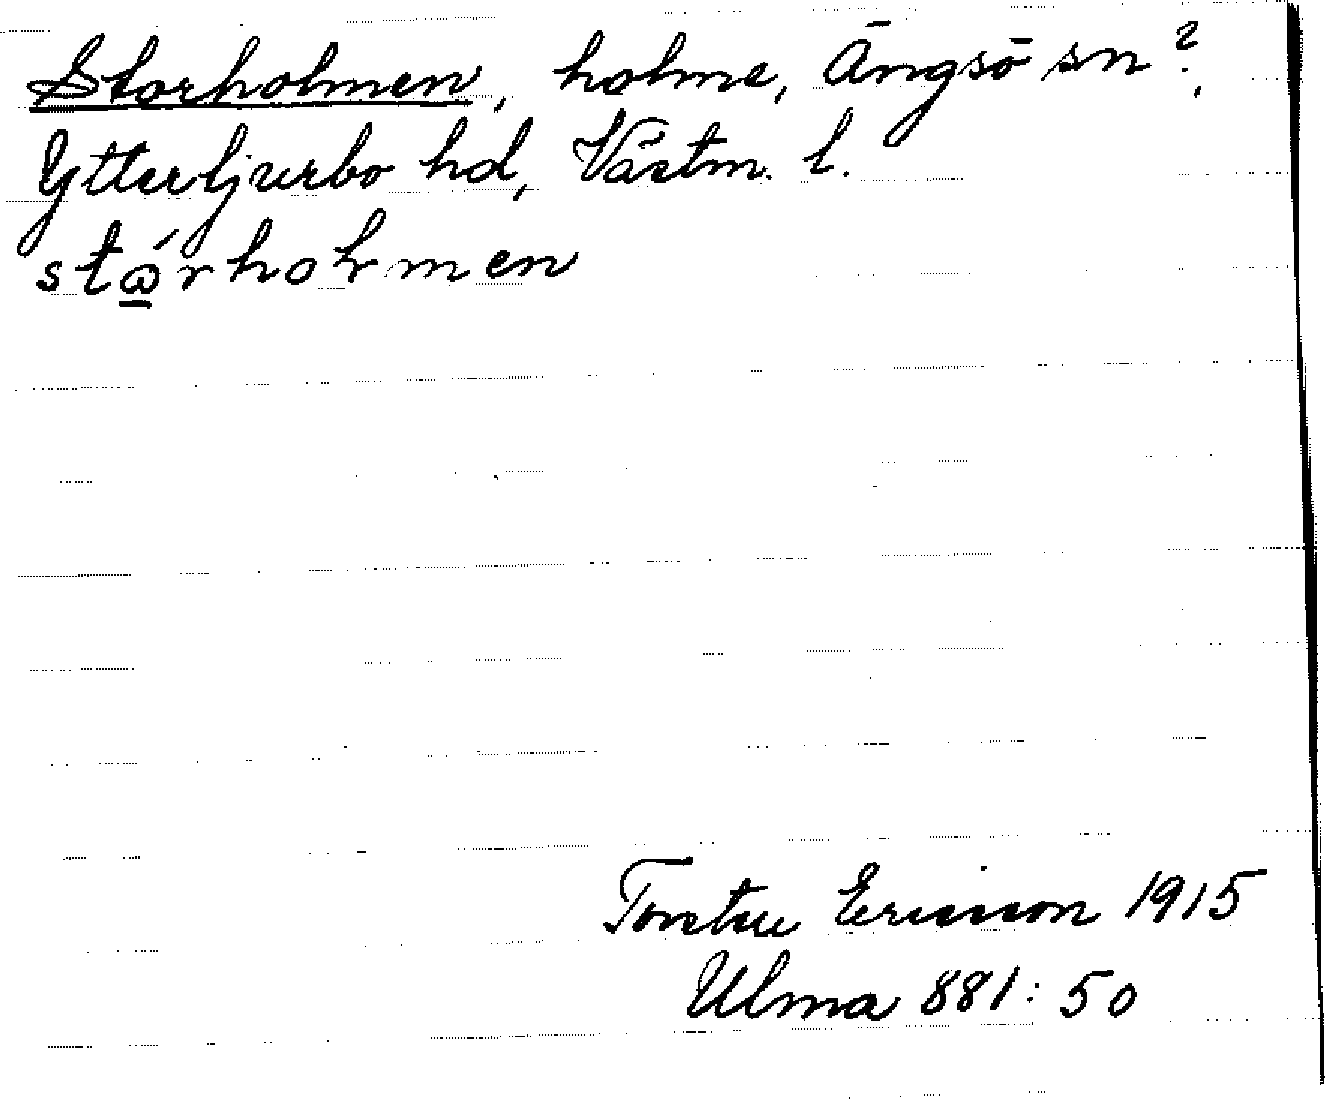 Storholmen, holme, Ängsö sn?,
Yttertjurbo hd, Västm. l.
stώ̲rhoƚmen
Torsten Ericsson 1915
Ulma 881:50